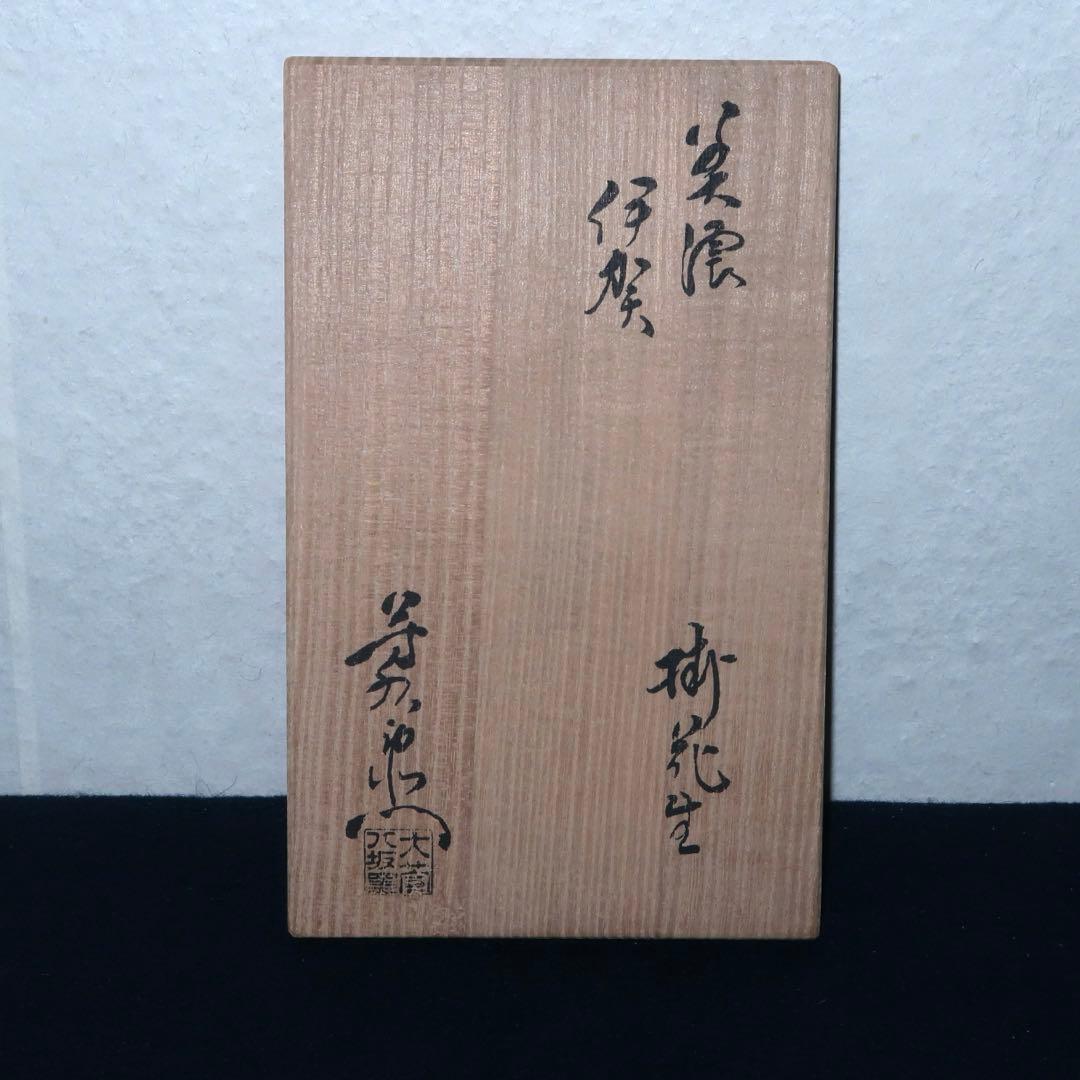 美濃
伊賀
掛花生
大萱
八坂窯